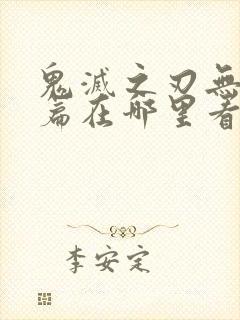 鬼滅之刃無
篇在哪里看
李安定